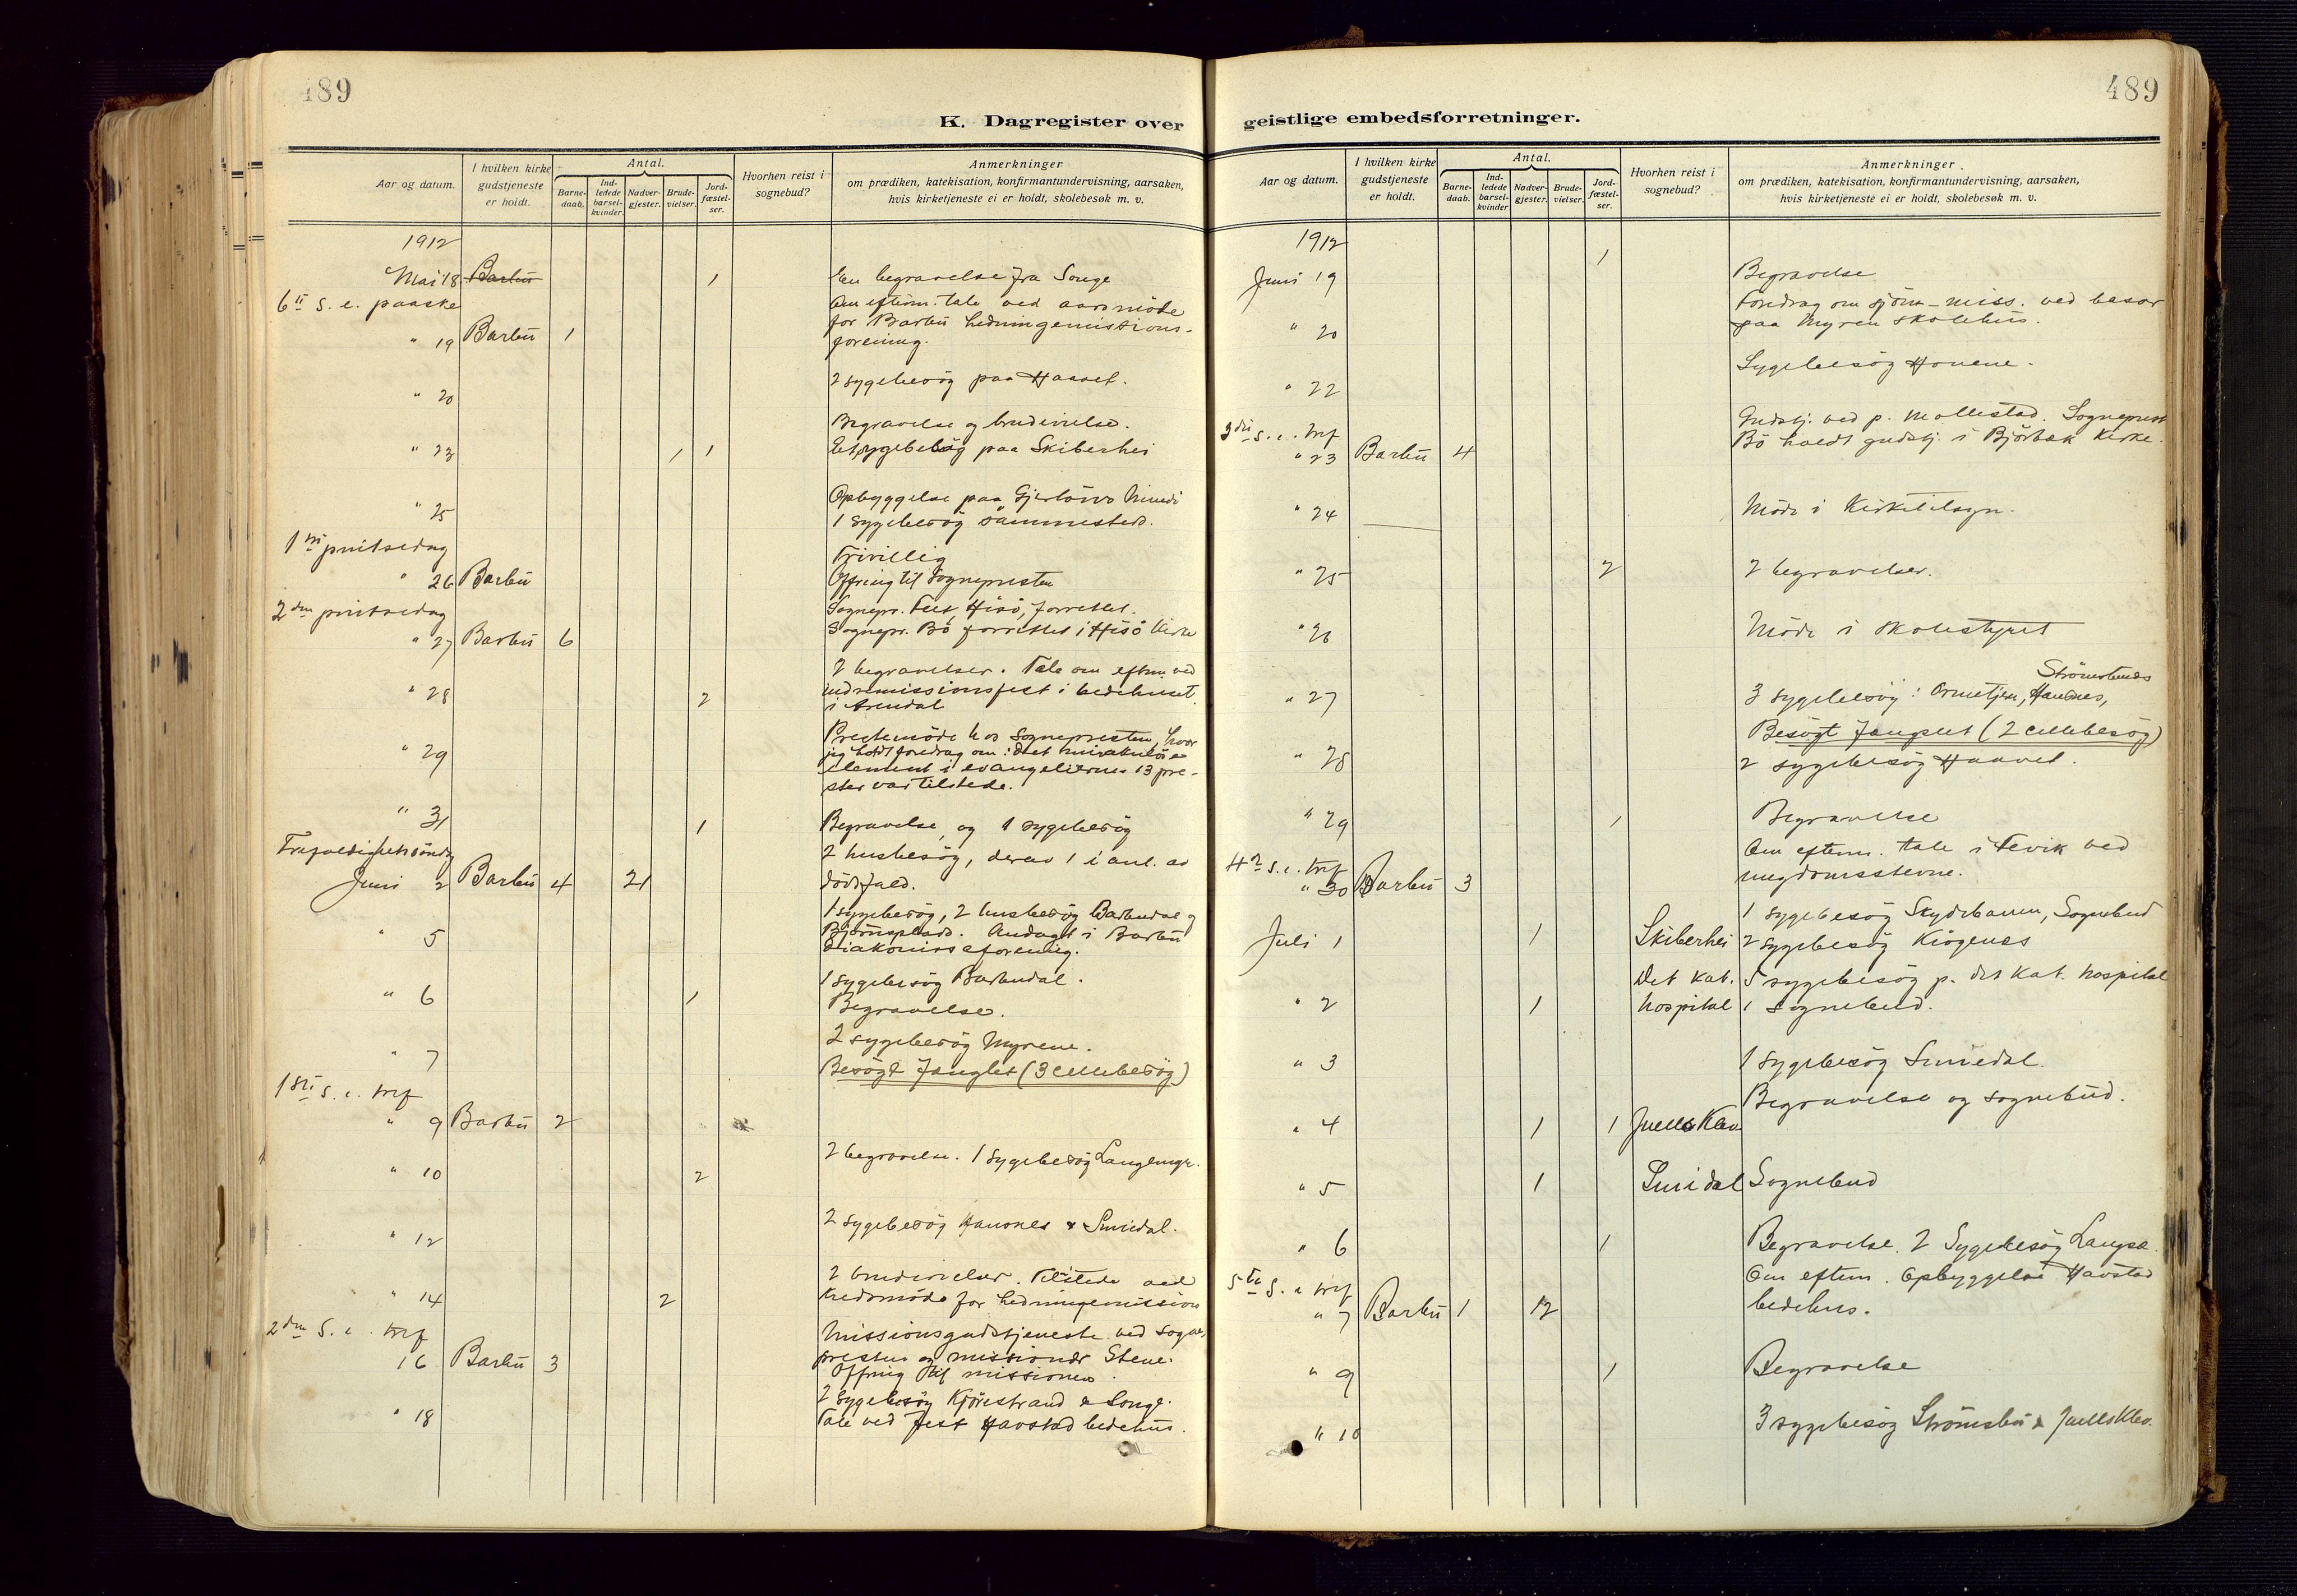 489
K. Dagregister over
Aar og datum.
I hvilken kirke gudstjeneste er holdt.
Antal.
Barne-daab.
Ind-ledede barsel-kvinder.
Nadver-gjester.
Brude-vielser.
Jord-fæstel-ser.
Hvorhen reist i sognebud?
Anmerkninger
om prædiken, katekisation, konfirmantundervisning, aarsaken,
hvis kirketjeneste ei er holdt, skolebesøk m. v.
1912
Mai 18 Barbu 1 En begravelse fra Songe
6te S. e. paaske Om efterm. tale ved aarsmöde
for Barbu hedningemissions-
" 19 Barbu 1 forening.
" 20 2 sygebesög paa Haavet.
Begravelse og brudevielse.
" 23 1 1 Et sygebesög paa Skiberhei
Opbyggelse paa
" 25 1 sygebesög sammesteds.
1ste pintsedag Frivillig
" 26 Barbu Offring til sognepresten
2den pintsedag Sognepr. Hisö, forrettet.
" 27 Barbu 6 Sognepr. Bö forrettet i Hisö Kirke
2 begravelser. Tale om efterm. ved
" 28 2 indremissionsfest i bedehuset
i Arendal
Prestemöde hos Sognepresten hvor
" 29 jeg holdt foredrag om: det mirakulöse
element i evangelierne. 13 pre-
ster var tilstede.
" 31 1 Begravelse og 1 sygebesög
Trefoldighetssöndag 2 husbesög, derav 1 i anl. av
Juni 2 Barbu 4 21 dödsfald.
1 sygebesög, 2 husbesög Barbudal og
" 5 Björnsplads. Andagt i Barbu
diakonisseforening.
1 sygebesög Barbudal.
" 6 1 Begravelse.
2 sygebesög Myrene.
" 7 Besögt fænglet (3 cellebesög)
1ste S. e. tref
" 9 Barbu 2
" 10 2 2 begravelse. 1 sygebesög Langemyr.
" 12 2 sygebesög Hausnes & Smedal.
2 brudevielser. Tilstede ved
" 14 2 Kredsmöde for hedningemission
2den S. e. tref Missionsgudstjeneste ved sogne-
16 Barbu 3 presten og missionær Stene.
Offring til missionen.
2 sygebesög Kjörestrand & Songe.
" 18 Tale ved fest Havstad bedehus.
489
geistlige embedsforretninger.
Aar og datum.
I hvilken kirke gudstjeneste er holdt.
Antal.
Barne-daab.
Ind-ledede barsel-kvinder
Nadver-gjester.
Brude-vielser.
Jord-fæstel-ser.
Hvorhen reist i sognebud?
Anmerkninger
om prædiken, katekisation, konfirmantundervisning, aarsaken,
hvis kirketjeneste ei er holdt, skolebesøk m. v.
1912
Juni 19 1 Begravelse
Foredrag om sjöm-miss. ved basar
" 20 paa Myren skolehus.
" 22 Sygebesög Hovene.
3die S. e. tref Gudstj. ved p. Mollestad. Sogneprest
" 23 Barbu 4 Bö holdt gudstj. i Björbæk Kirke.
" 24 Möde i Kirketilsyn.
" 25 2 2 begravelser.
" 26 Möde i skolestyret
Strömsbunes
" 27 3 sygebesög: Ormetjen, Hausnes,
Besögt fængslet (2 cellebesög)
" 28 2 sygebesög Haavet.
" 29 1 Begravelse
4de S. e. tref Om efterm. tale i Fevik ved
" 30 Barbu 3 ungdomsstevne.
1 sygebesög Skydebanen, Sognebud
Juli 1 1 Skiberhei 2 sygebesög Kiögenes
Det kat. 5 sygebesög p. det kat. hospital
" 2 1 hospital 1 sognebud.
" 3 1 sygebesög Smedal.
Begravelse og sognebud.
" 4 1 1 Juells Klev
" 5 1 Smidal Sognebud
" 6 1 Begravelse. 2 Sygebesög Langsæ.
5te S. e tref Om efterm. Opbyggelse Havstad
" 7 Barbu 1 12 bedehus.
" 9 1 Begravelse
" 10 3 sygebesög Strömsbu & Juells Klev.